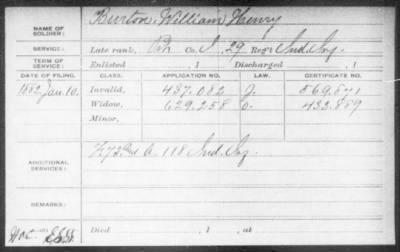 NAME OF SOLDIER: Burton, William Henry
SERVICE: Late rank, Co. I, 29 Reg't Ind. Inf.
TERM OF SERVICE: Enlisted , 1 Discharged , 1
DATE OF FILING. CLASS. APPLICATION NO. LAW. CERTIFICATE NO.
1882 Jan. 10. Invalid, 437.082 569.841
Widow, 629.258 432.889
Minor,
ADDITIONAL SERVICES: A. 118 Ind. Inf.
REMARKS:
Died , 1 , at